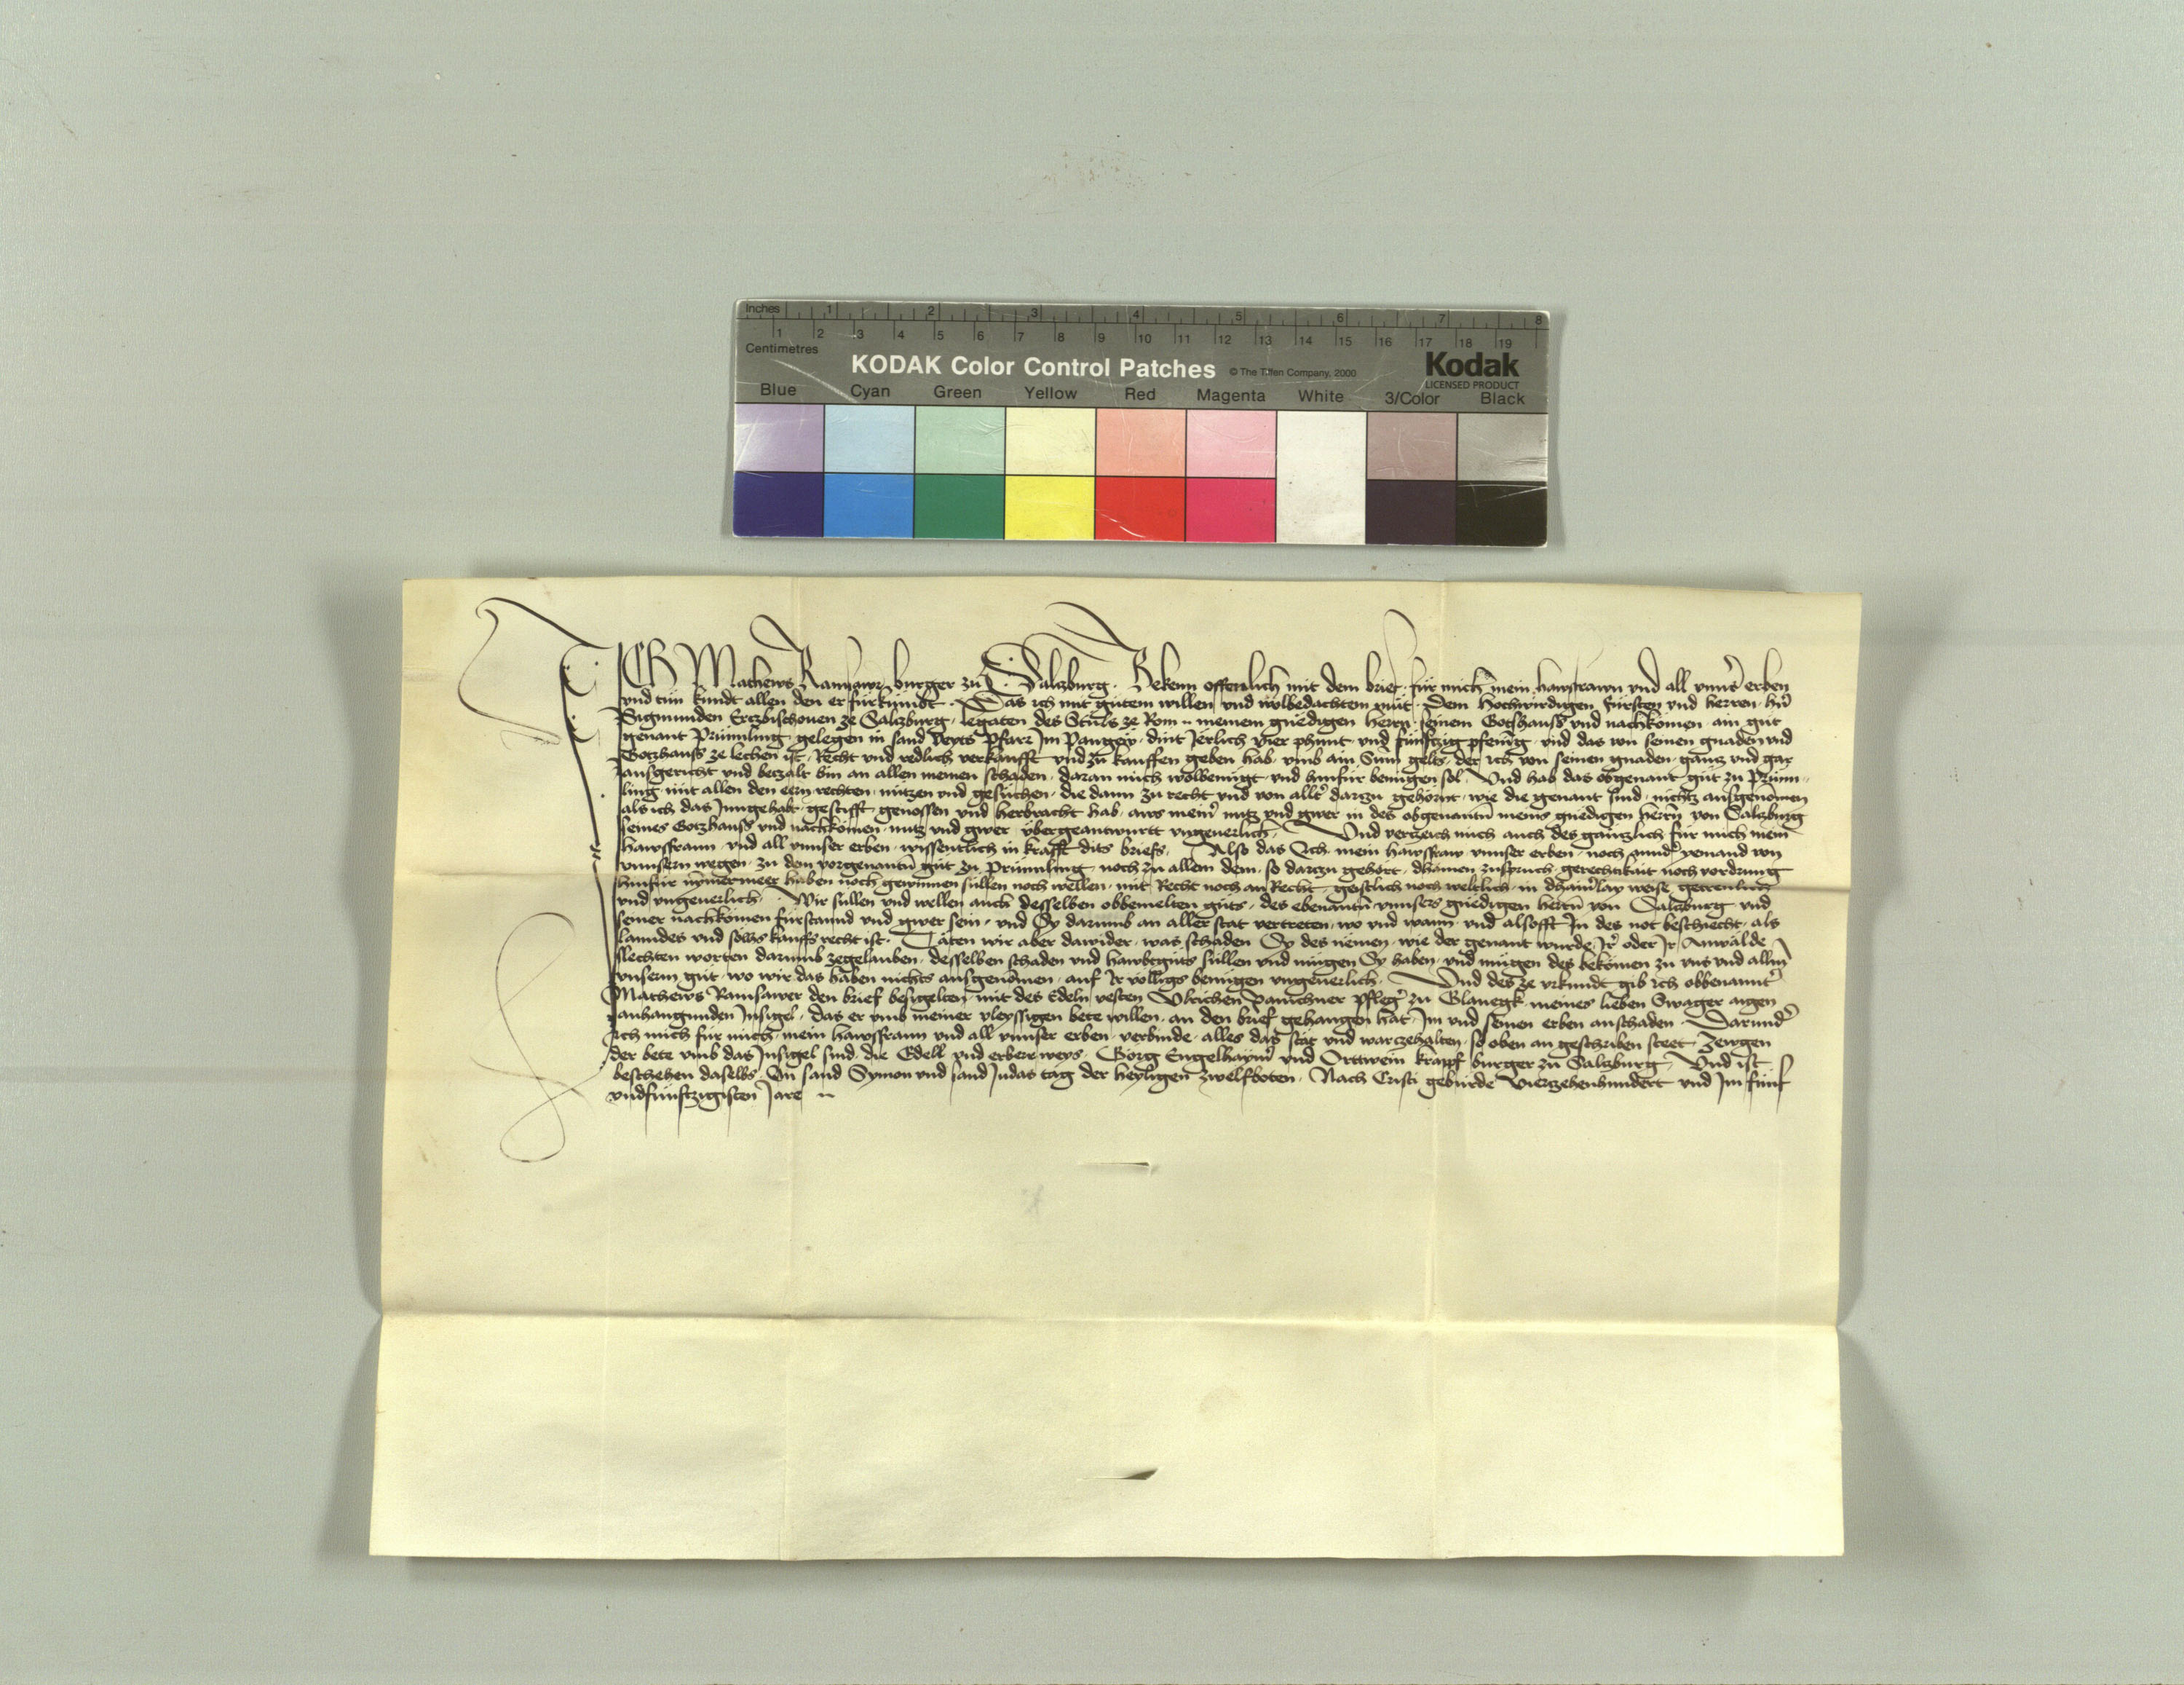 Inches 1 2 3 4 5 6 7 8
1 2 3 4 5 6 7 8 9 10 11 12 13 14 15 16 17 18 19
Centimetres
KODAK Color Control Patches © The Tiffen Company, 2000 Kodak
LICENSED PRODUCT
Blue Cyan Green Yellow Red Magenta White 3/Color Black
ICH Mathews Ramsawer burger zu Salzburg. Bekenn offennlich mit dem brief. für mich mein hawsfrawn vnd all vnnser erben
vnd tun kundt allen den er fürkumbt. Das ich mit gutem willen vnd wolbedachtem mut. Dem Hochwirdigen fürsten vnd herren. hern
Sigmunden Ertzbischouen ze Salzburg. Legaten des Stuls ze Rom meinem gnedigen herrn. seinem Gotzhauss vnd nachkomen. ain gut
genant Prümling gelegen in sand Veyts Pfarr Im Pangew. dint Jerlich vier phunt. vnd fünftzig pfennig. vnd das von seinen gnaden vnd
Gotzhauss ze lechen ist. Recht vnd redlich verkaufft vnd zu kauffen geben hab. vmb ain Sum gelts. der ich von seinen gnaden. gantz vnd gar
ausgericht vnd betzalt bin an allen meinen schaden. daran mich wolbenugt. vnd hinfür benugen sol. Vnd hab das obgenant gut zu Prüm
ling. mit allen den eern. rechten. nutzen vnd gesuchen. die dann zu recht vnd von allter dartzu gehornt. wie die genant sind. nichtz ausgenomen
als ich das Inngehabt. gestifft. genossen vnd herbracht hab. aws meiner nutz vnd gwer in des obgenantn meins gnedigen herrn von Salzburg
seines Gotzhauss vnd nachkomen. nutz vnd gwer. übergeantwurtt vngeuerlich. Vnd vertzeich mich auch des gantzlich für mich mein
hawsfrawn. vnd all vnnser erben. wissentlich in krafft dits briefs. Also das Ich. mein hawsfraw. vnnser erben. noch annder yemand von
vnnsern wegen. zu dem vorgenantn gut zu Prümling. noch zu allem dem. so dartzu gehört. dhainen zuspruch. gerechtikait noch vordrung
hinfür nymermeer haben noch gewinnen sullen noch wellen. mit Recht noch an Recht. geistlich noch weltlich. in dhainerlay weise getreulich
vnd vngeuerlich. Wir sullen vnd wellen auch desselben obbemelten guts. des ebenantn vnnsers gnedigen herrn von Salzburg vnd
seiner nachkomen fürstannd vnd gwer sein. vnd Sy darumb an aller stat vertreten. wo vnd wann. vnd alsofft In des not beschiecht. als
lanndes vnd sölhs kauffs recht ist. Täten wir aber dawider. was schaden Sy des nemen. wie der genant wurde. Ir oder Ir Anwälde
slechten worten darumb zegelauben. desselben schaden vnd hawbtguts sullen vnd mugen Sy haben. vnd mugen des bekomen zu vns vnd allem
vnserm gut. wo wir das haben nichts ausgenomen. auf Ir völligs benugen vngeuerlich. Vnd des ze vrkundt gib ich obbenannter
Mathews Ramsawer den brief besigelten. mit des Edeln vesten Vlrichen Panichner pfleger zu Glanegk. meines lieben Swager aigen
anhangunden Insigel. das er vmb meiner vleyssigen bete willen. an den brief gehangen hat. Im vnd seinen erben anschaden. Darunder
Ich mich für mich. mein hawsfrawn vnd all vnnser erben. verbinde. alles das stät vnd war zehalten. so oben an geschriben steet. Zewgen
der bete vmb das Insigel sind. die Edell vnd erberr weys. Görg Engelhaymer vnd Orttwein krapf burger zu Salzburg. Vnd ist
beschehen daselbs. An sand Symon vnd sand Judas tag der heyligen zwelfboten. Nach Cristi geburde Viertzehenhundert vnd Im fünf
vndfünftzigisten Jare